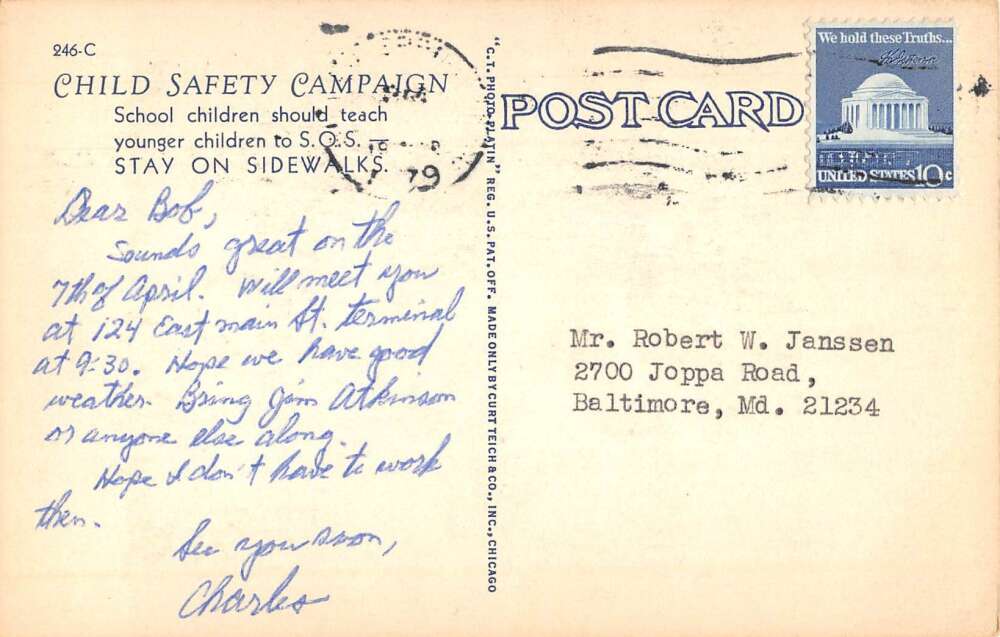 246-C
CHILD SAFETY CAMPAIGN
School children should teach
younger children to S.O.S. –
STAY ON SIDEWALKS.
Dear Bob,
Sounds great on the
7th of April. Will meet you
at 124 East main St. terminal
at 9:30. Hope we have good
weather. Bring Jim Atkinson
or anyone else along.
Hope I don't have to work
then.
See you soon,
Charles
"C.T. PHOTO-PLATIN" REG. U.S. PAT. OFF. MADE ONLY BY CURT TEICH & CO., INC., CHICAGO
POST CARD
79
We hold these Truths...
UNITED STATES 10c
Mr. Robert W. Janssen
2700 Joppa Road,
Baltimore, Md. 21234